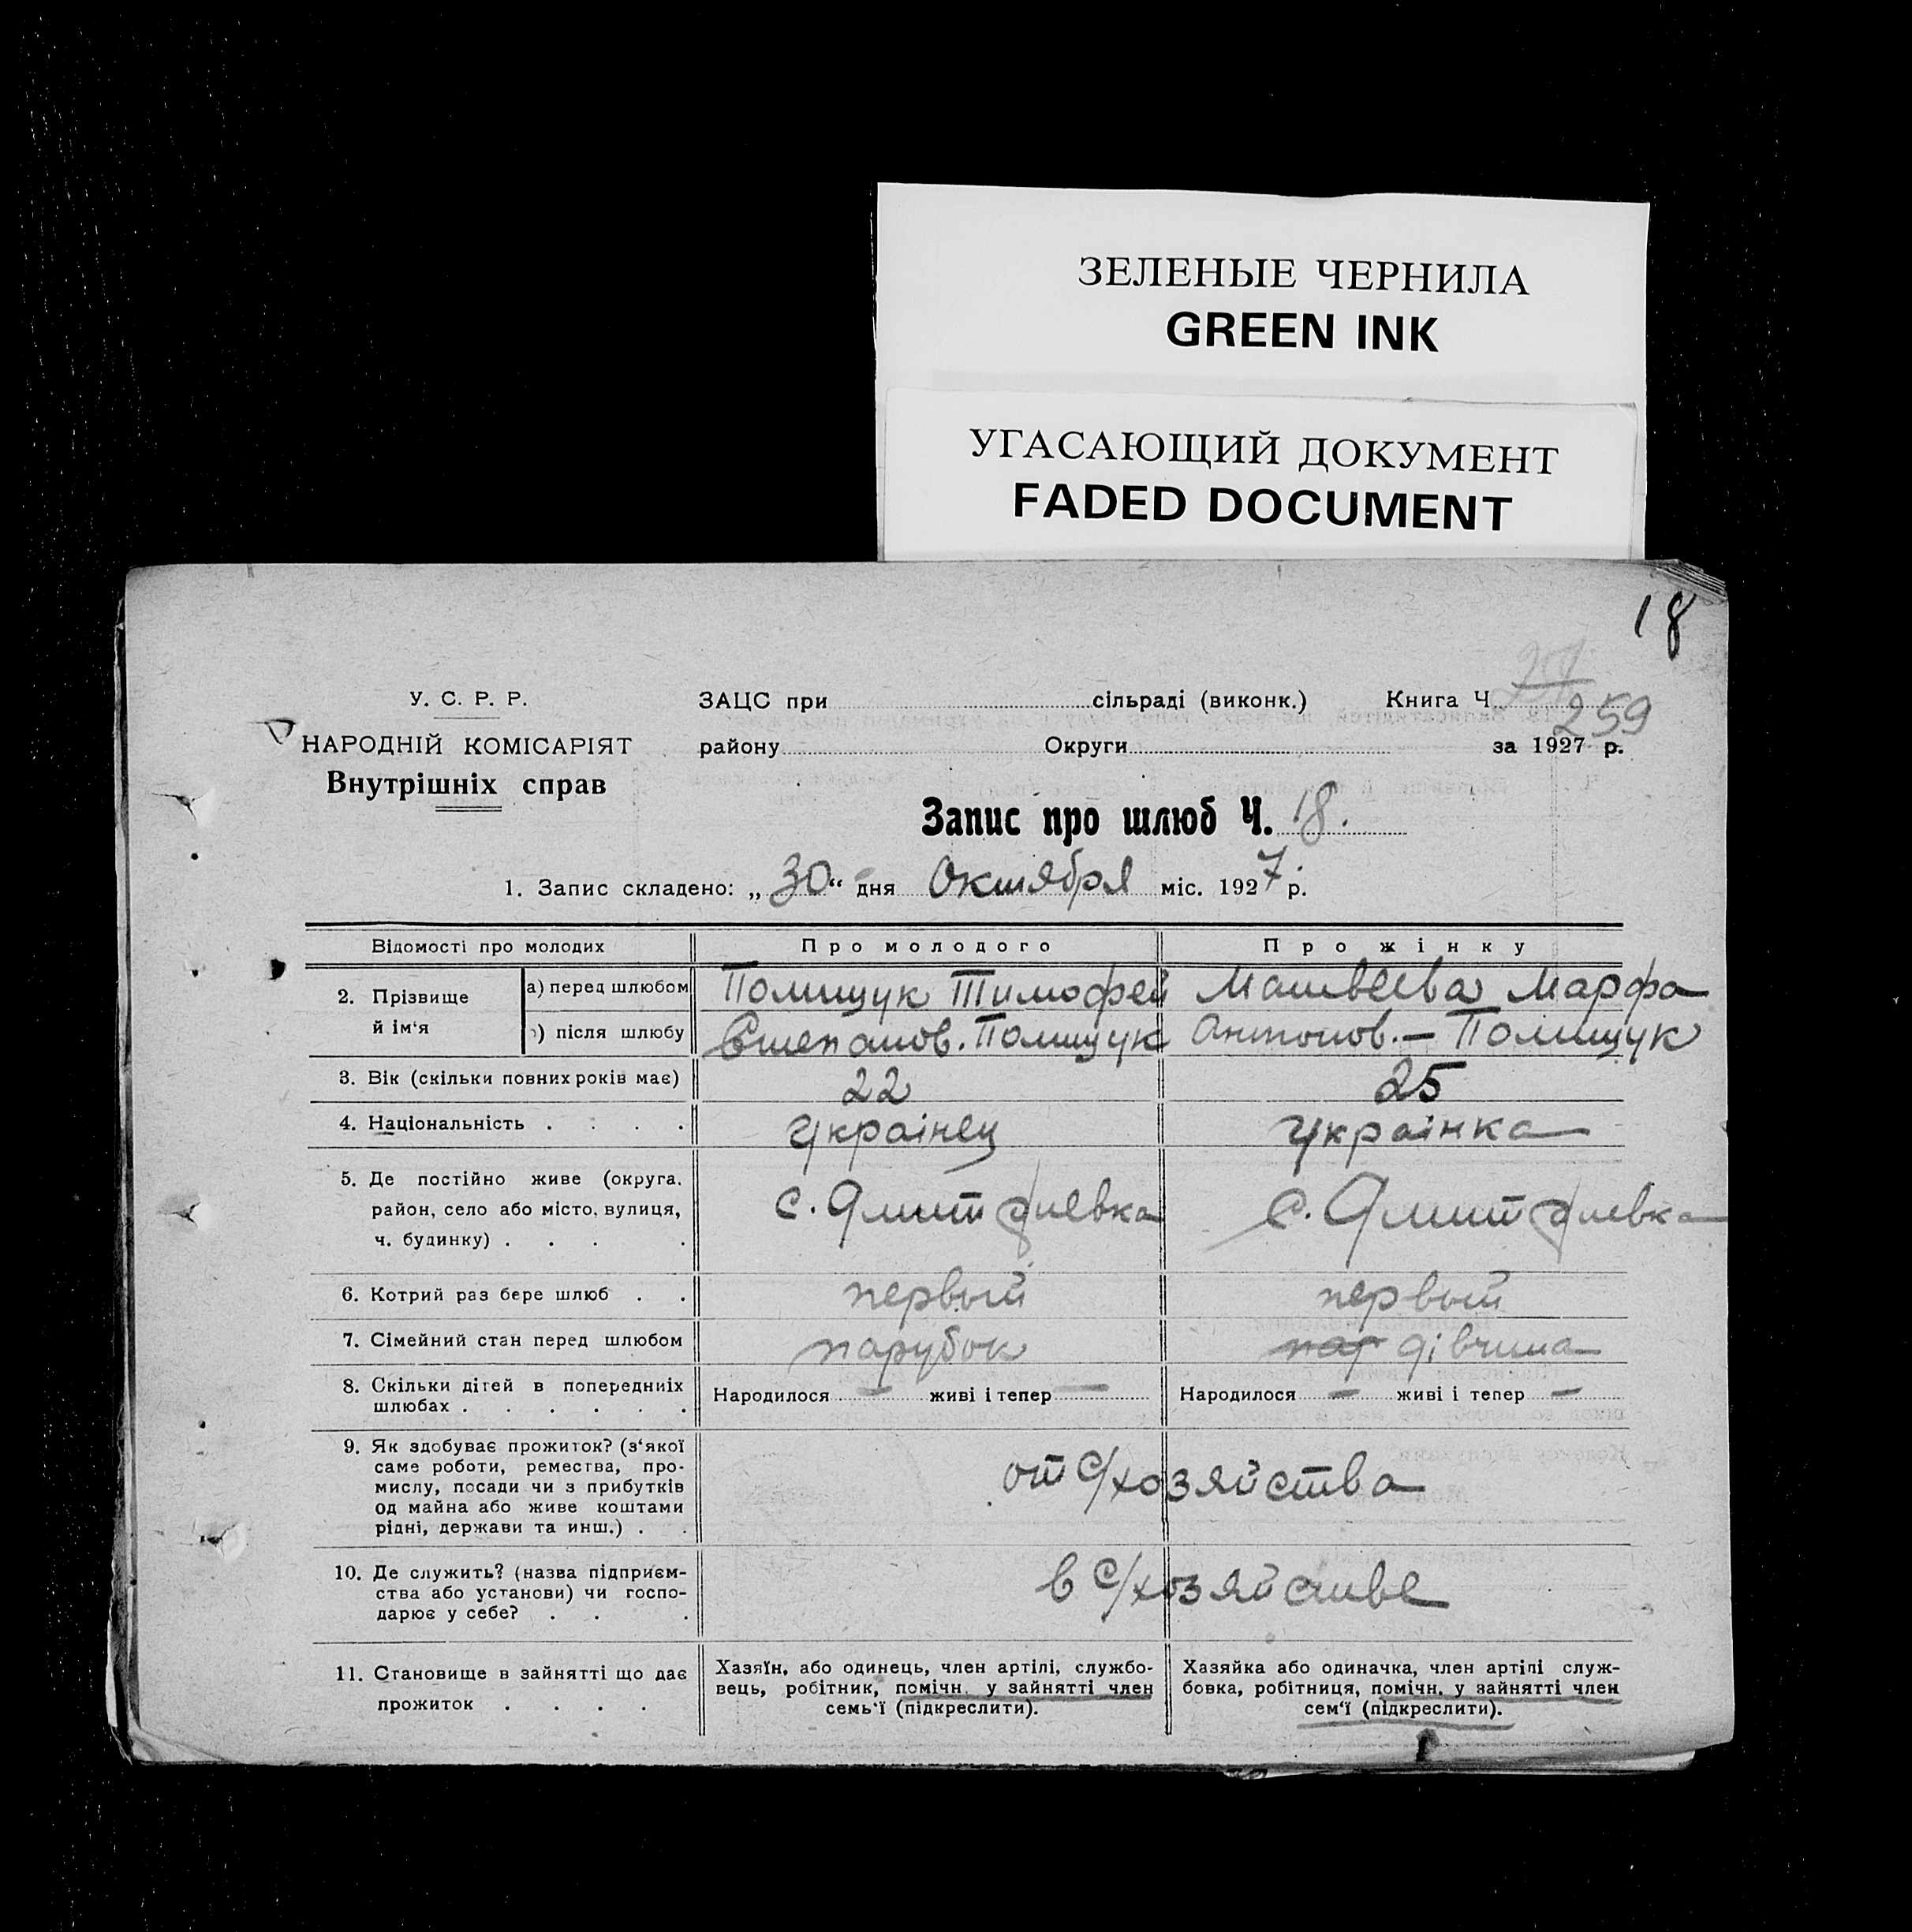 ЗЕЛЕНЫЕ ЧЕРНИЛА
GREEN INK
УГАСАЮЩИЙ ДОКУМЕНТ
FADED DOCUMENT
18
У. С. Р. Р.
НАРОДНІЙ КОМІСАРІЯТ
Внутрішніх справ
ЗАЦС при сільраді (виконк.) Книга Ч.
259
району Округи за 1927 р.
Запис про шлюб Ч. 18.
1. Запис складено: „30“ дня Октября міс. 1927 р.
Відомості про молодих Про молодого Про жінку
2. Прізвище й ім‘я
а) перед шлюбом Полищук Тимофей Матвеева Марфа
б) після шлюбу Степанов. Полищук Антонов. — Полищук
3. Вік (скільки повних років має) 22 25
4. Національність . . . . Українец Українка
5. Де постійно живе (округа,
район, село або місто, вулиця,
ч. будинку) . . . .
с. Дмитриевка с. Дмитриевка
6. Котрий раз бере шлюб . . первый первый
7. Сімейний стан перед шлюбом парубок пар дівчина
8. Скільки дітей в попередніх
шлюбах . . . . . .
Народилося — живі і тепер — Народилося — живі і тепер —
9. Як здобуває прожиток? (з‘якої
саме роботи, ремества, про-
мислу, посади чи з прибутків
од майна або живе коштами
рідні, держави та инш.) . .
от с/хозяйства
10. Де служить? (назва підприєм-
ства або установи) чи госпо-
дарює у себе? . . .
в с/хозяйстве
11. Становище в зайнятті що дає
прожиток . . . .
Хазяїн, або одинець, член артілі, службо-
вець, робітник, помічн. у зайнятті член
семь‘ї (підкреслити).
Хазяйка або одиначка, член артілі служ-
бовка, робітниця, помічн. у зайнятті член
сем‘ї (підкреслити).